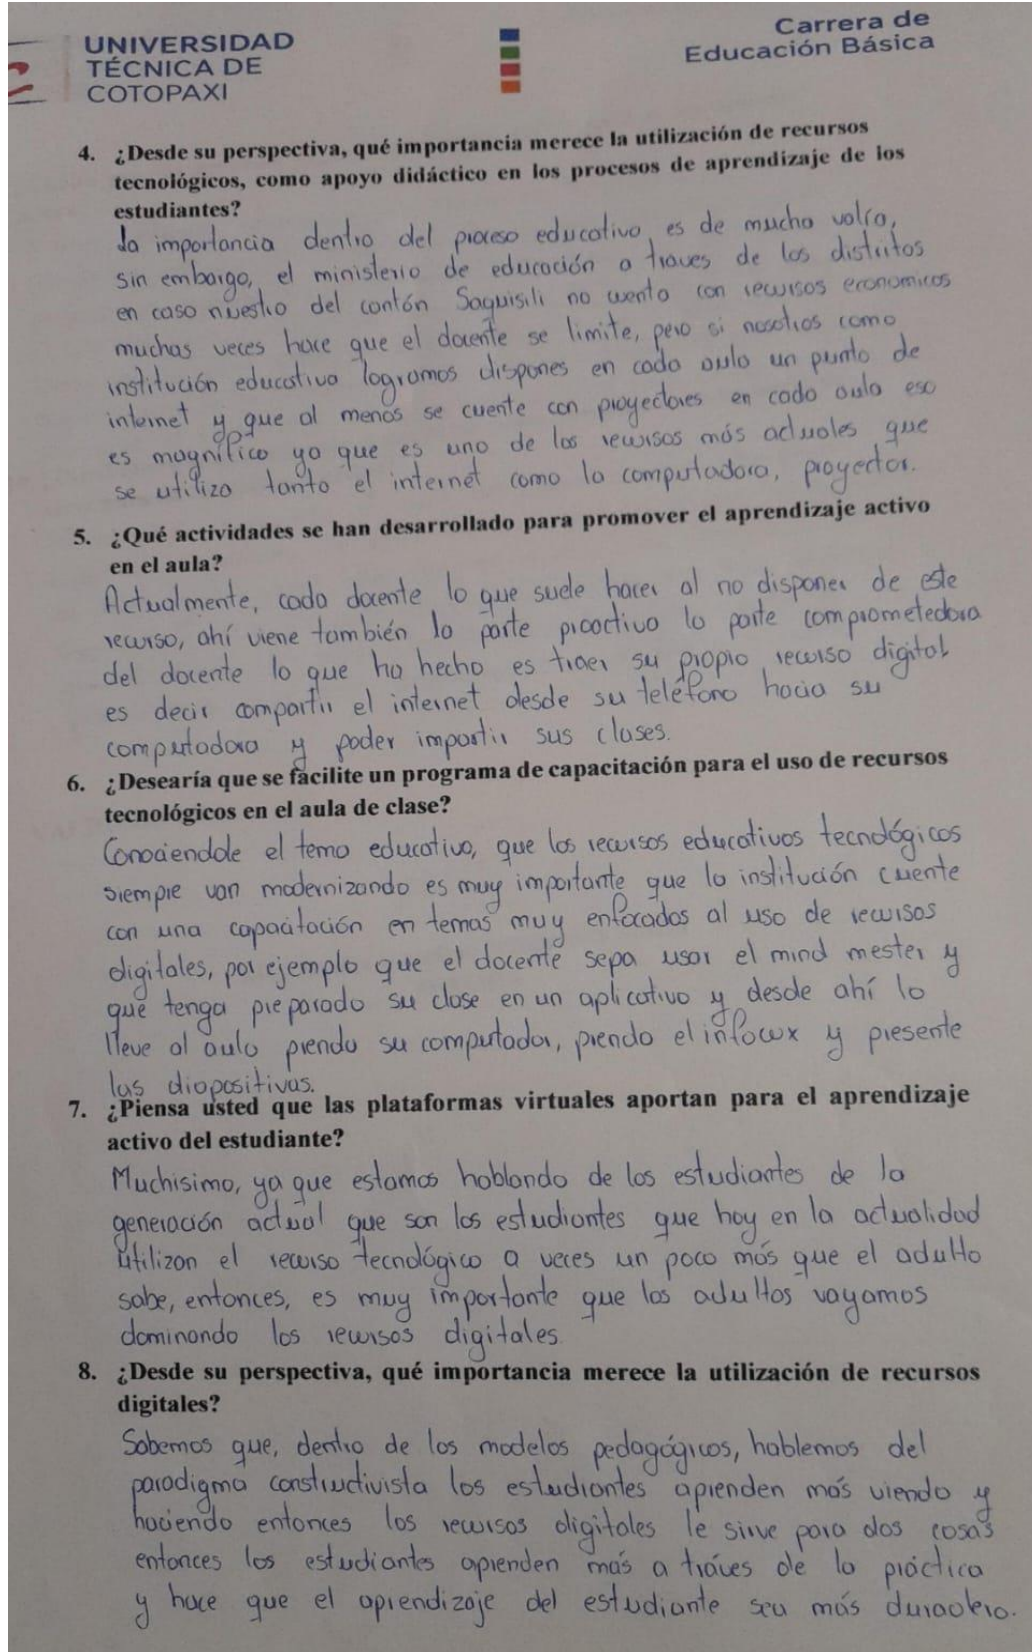 UNIVERSIDAD
TÉCNICA DE
COTOPAXI
Carrera de
Educación Básica
4. ¿Desde su perspectiva, qué importancia merece la utilización de recursos
tecnológicos, como apoyo didáctico en los procesos de aprendizaje de los
estudiantes?
La importancia dentro del proceso educativo, es de mucho valro,
sin embargo, el ministerio de educación a traves de los distritos
en caso nuestro del cantón Saquisili no cuenta con recursos economicos
muchas veces hace que el docente se limite, pero si nosotros como
institución educativa logramos dispones en cada aula un punto de
internet y que al menos se cuente con proyectores en cada aula eso
es magnífico ya que es uno de los recursos más actuales que
se utiliza tanto el internet como la computadora, proyector.
5. ¿Qué actividades se han desarrollado para promover el aprendizaje activo
en el aula?
Actualmente, cada docente lo que suele hacer al no disponer de este
recurso, ahí viene también la parte proactiva la parte comprometedora
del docente lo que ha hecho es traer su propio recurso digital
es decir compartir el internet desde su teléfono hacia su
computadora y poder impartir sus clases.
6. ¿Desearía que se facilite un programa de capacitación para el uso de recursos
tecnológicos en el aula de clase?
Conociendole el tema educativo, que los recursos educativos tecnológicos
siempre van modernizando es muy importante que la institución cuente
con una capacitación en temas muy enfocados al uso de recursos
digitales, por ejemplo que el docente sepa usar el mind mester y
que tenga preparado su clase en un aplicativo y desde ahí lo
lleve al aula prenda su computador, prenda el infocux y presente
las diapositivas.
7. ¿Piensa usted que las plataformas virtuales aportan para el aprendizaje
activo del estudiante?
Muchisimo, ya que estamos hablando de los estudiantes de la
generación actual que son los estudiantes que hoy en la actualidad
utilizan el recurso tecnológico a veces un poco más que el adulto
sabe, entonces, es muy importante que los adultos vayamos
dominando los recursos digitales.
8. ¿Desde su perspectiva, qué importancia merece la utilización de recursos
digitales?
Sabemos que, dentro de los modelos pedagógicos, hablemos del
paradigma constructivista los estudiantes aprenden más viendo y
haciendo entonces los recursos digitales le sirve para dos cosas
entonces los estudiantes aprenden más a tráves de la práctica
y hace que el aprendizaje del estudiante sea más duradero.